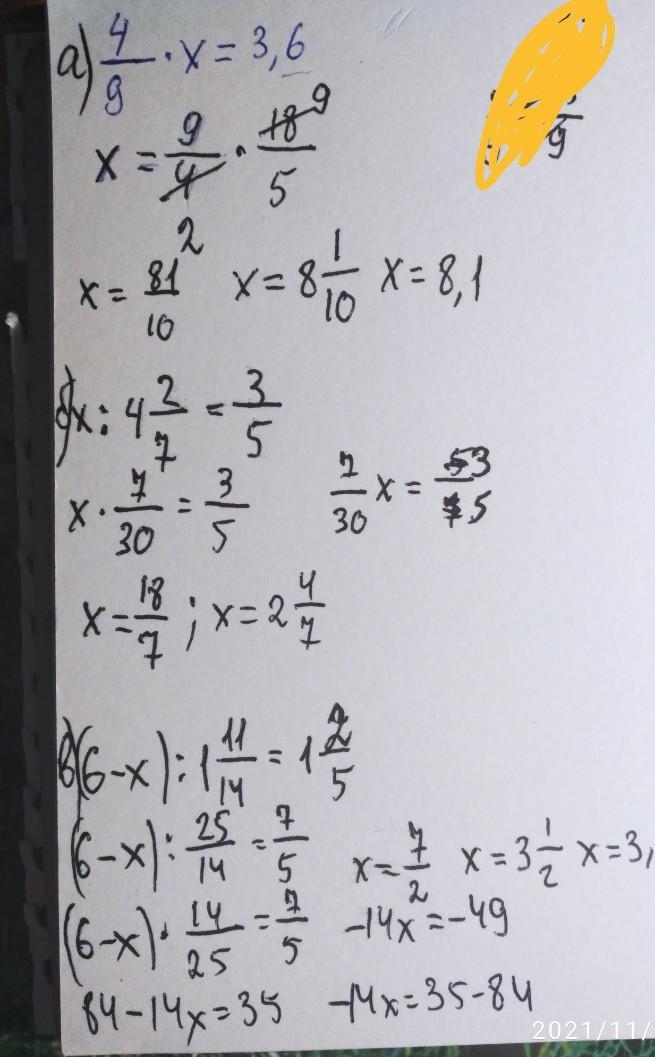 а) 4/9 · x = 3,6
x = 9/4 · 18/5 9
2
9
x = 81/10 x = 8 1/10 x = 8,1
б) x : 4 2/7 = 3/5
x · 7/30 = 3/5 7/30 x = 3/5
x = 18/7 ; x = 2 4/7
в) (6-x) : 1 11/14 = 1 2/5
(6-x) : 25/14 = 7/5 x = 7/2 x = 3 1/2 x = 3,
(6-x) · 14/25 = 7/5 -14x = -49
84-14x=35 -14x=35-84
2021/11/